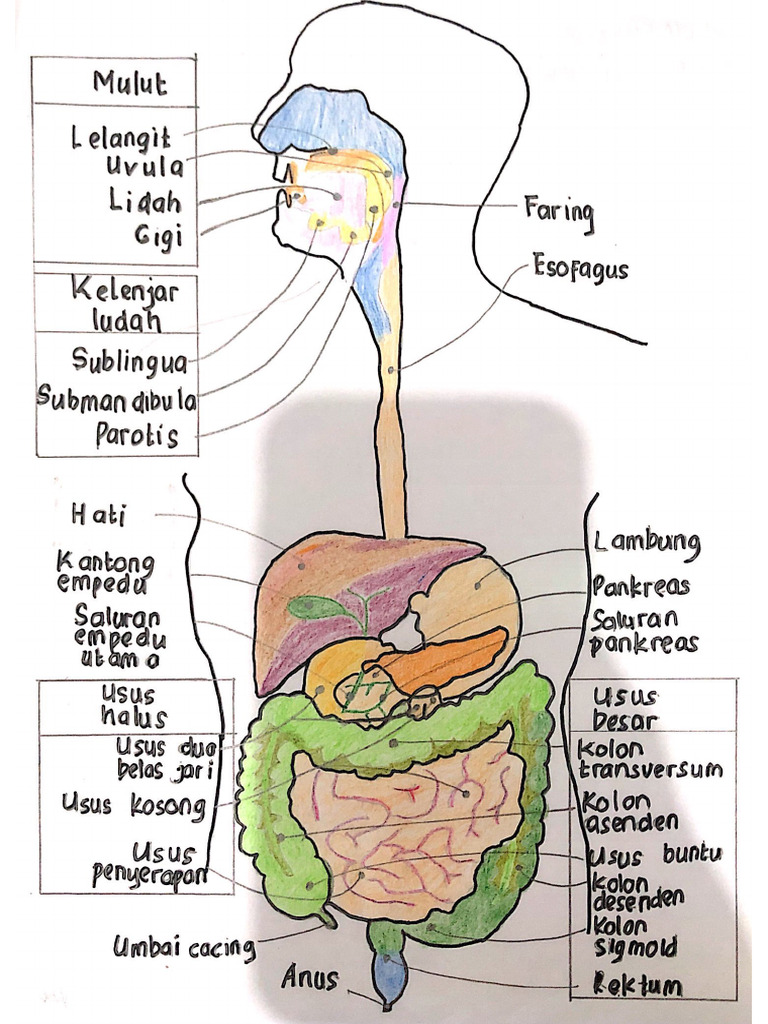 Mulut
Lelangit
Uvula
Lidah
Gigi
Kelenjar
ludah
Sublingua
Submandibula
Parotis
Faring
Esofagus
Hati
Kantong
empedu
Saluran
empedu
utama
Usus
halus
Usus dua
belas jari
Usus kosong
Usus
penyerapan
Umbai cacing
Anus
Lambung
Pankreas
Saluran
pankreas
Usus
besar
Kolon
transversum
Kolon
asenden
Usus buntu
Kolon
desenden
Kolon
sigmold
Rektum